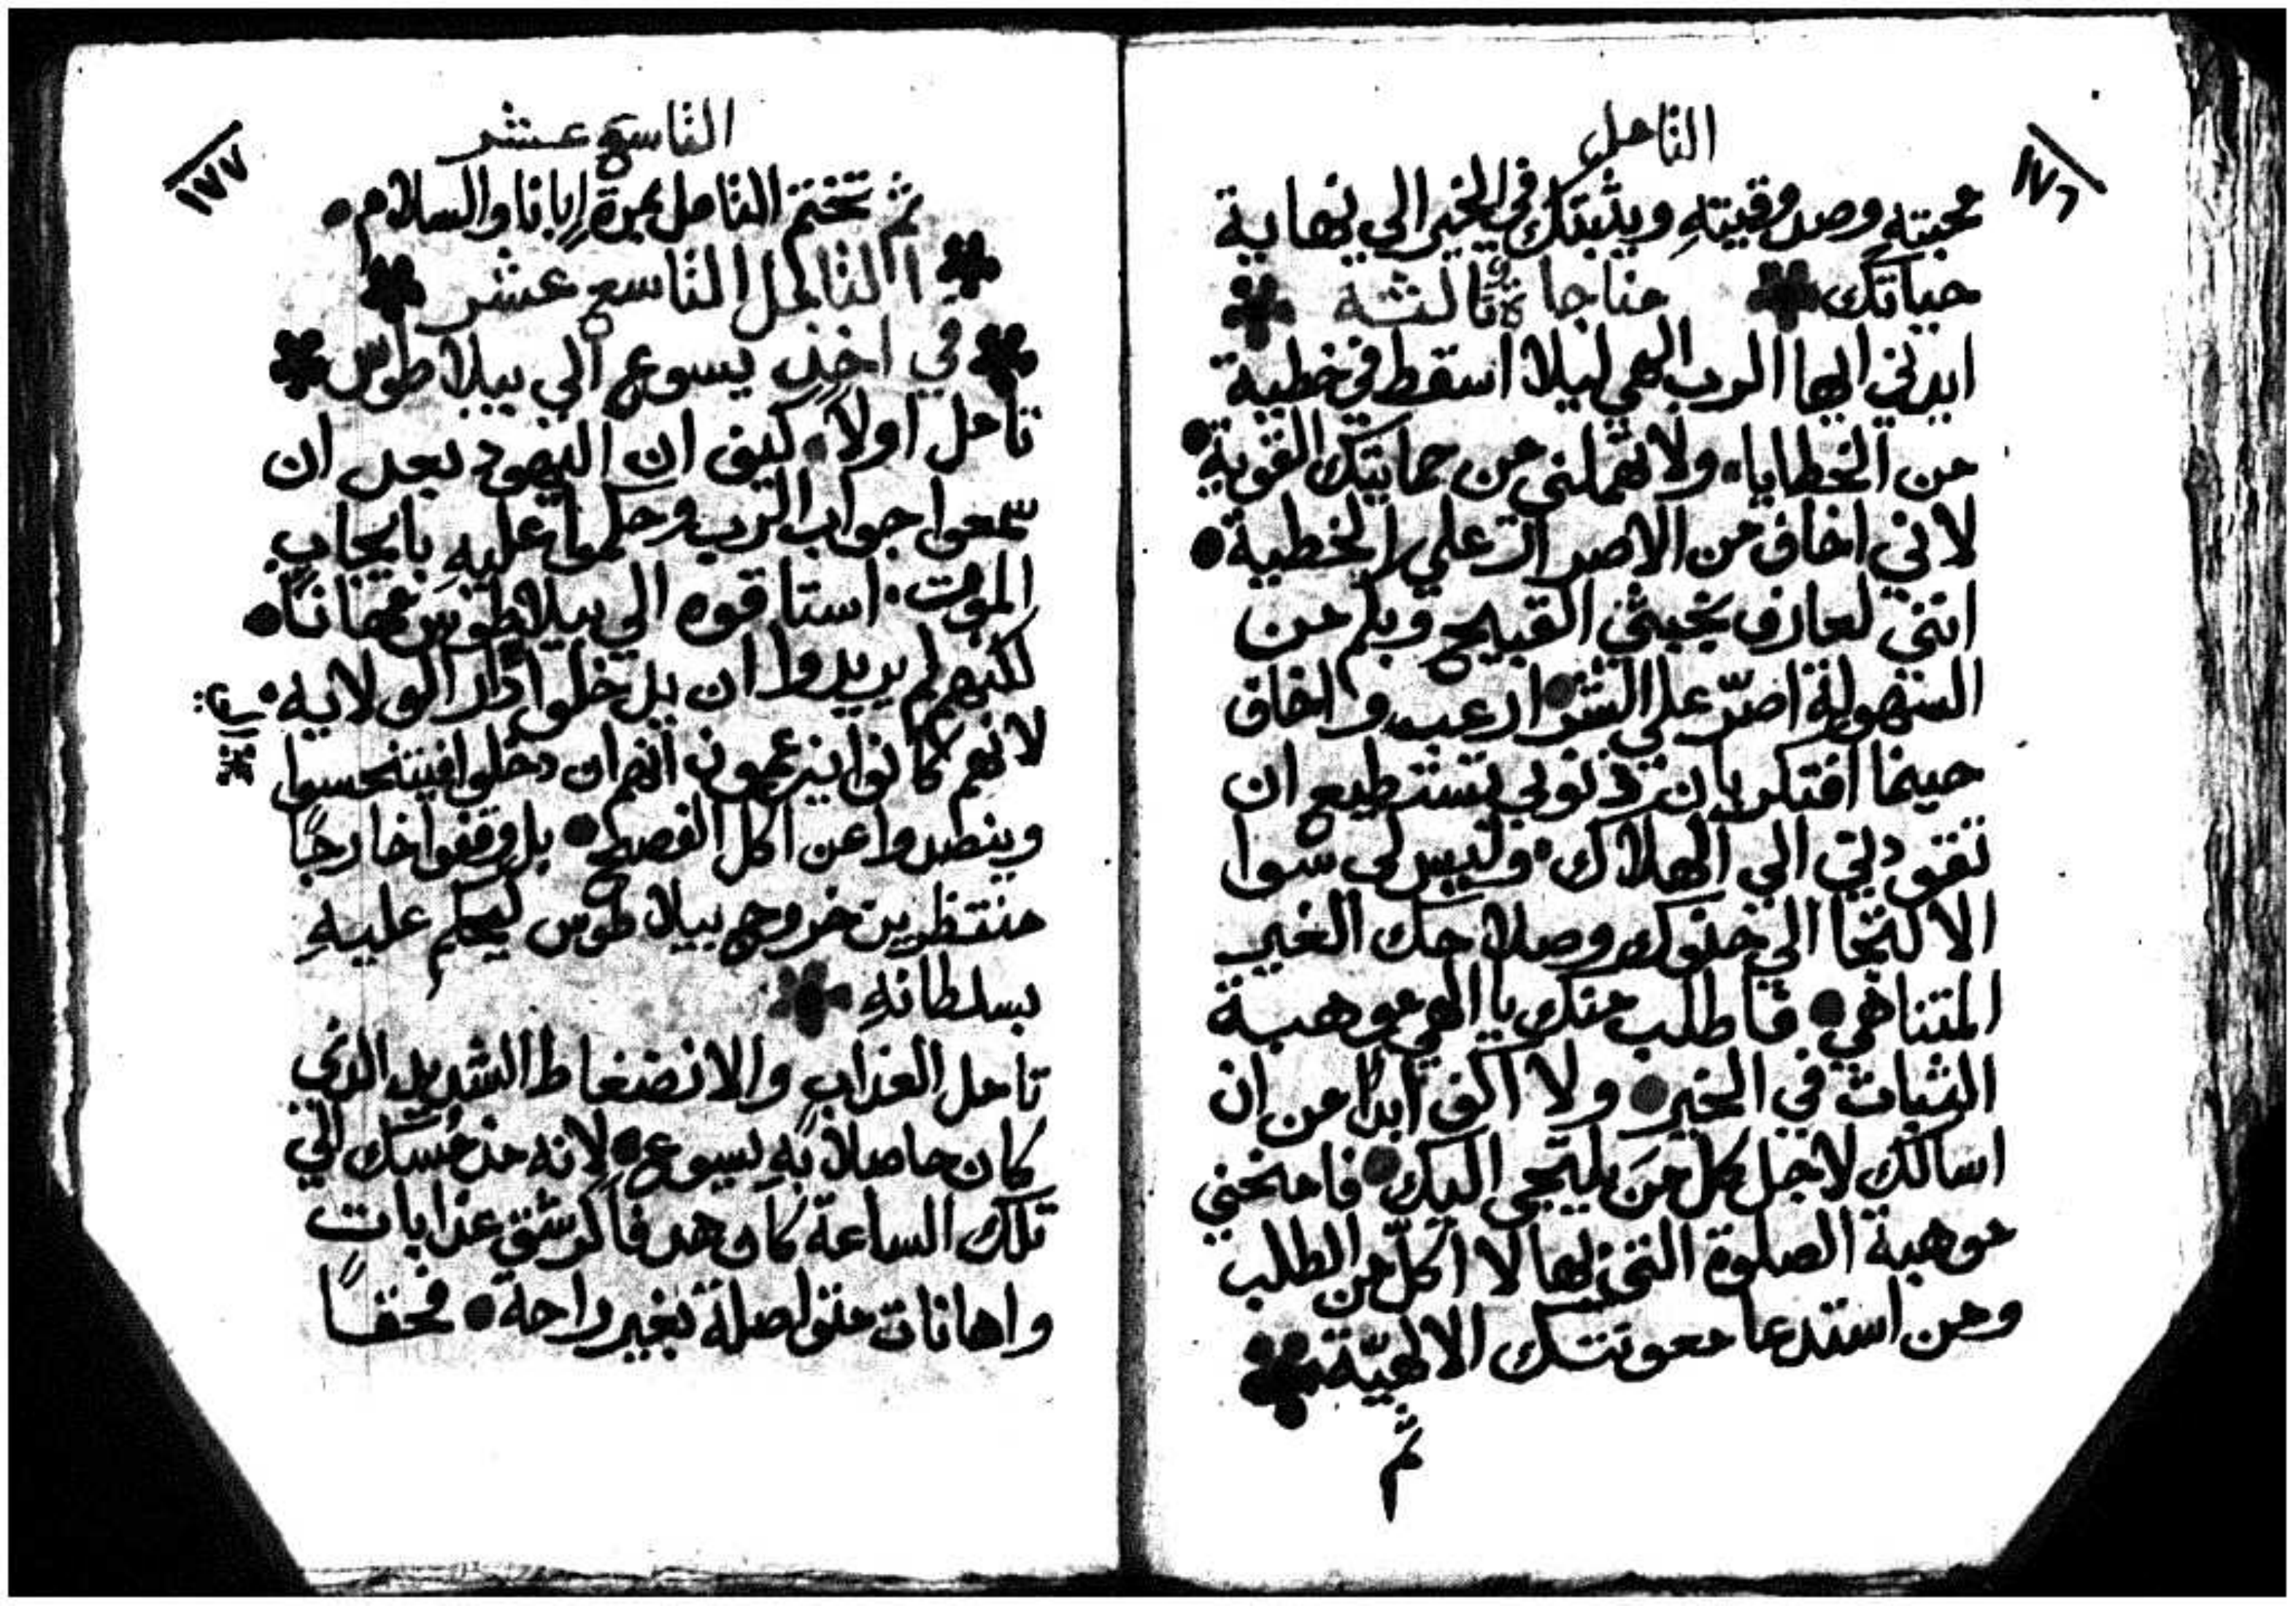 التامل
١٧٦
محبته وصدوقيته ويثبتك في الخير الي نهاية
حياتك مناجاة ثالثة
ايدني ايها الرب الهي ليلا اسقط في خطية
من الخطايا ولا تهملني من حمايتك القوية
لاني اخاف من الاصرار علي الخطية
انني لعارف بخبثي القبيح وبكم من
السهولة اصرّ علي الشر ارعب واخاف
حينما افتكر بان ذنوبي تستطيع ان
تقودني الي الهلاك وليس لي سوا
الالتجا الي حنوك وصلاحك الغير
المتناهي فاطلب منك يا الهي موهبة
الثبات في الخير ولا اكف ابدًا من ان
اسالك لاجل كل مَن يلتجي اليك فامنحني
موهبة الصلوة التي بها لا اكلّ من الطلب
ومن استدعا معونتك الالهيّة
ثم
التاسع عشر
١٧٧
ثم تختتم التامل بمرة ابانا والسلام
التامل التاسع عشر
في اخذ يسوع الي بيلاطوس
تامل اولاً كيف ان اليهود بعد ان
سمعوا جواب الرب وحكموا عليه بايجاب
الموت استاقوه الي بيلاطوس مهانًا
لكنهم لم يريدوا ان يدخلوا دار الولايه
لانهم كانوا يزعمون انهم ان دخلوا فيتنجسوا
وينصدوا عن اكل الفصح بل وقفوا خارجًا
منتظرين خروج بيلاطوس ليحكم عليه
بسلطانهِ
تامل العذاب والانضغاط الشديد الذي
كان حاصلاً بهِ يسوع لانه مذ مُسك الي
تلك الساعة كان هدفًا لرشق عذاباتٍ
واهانات متواصلة بغير راحة فحقًا